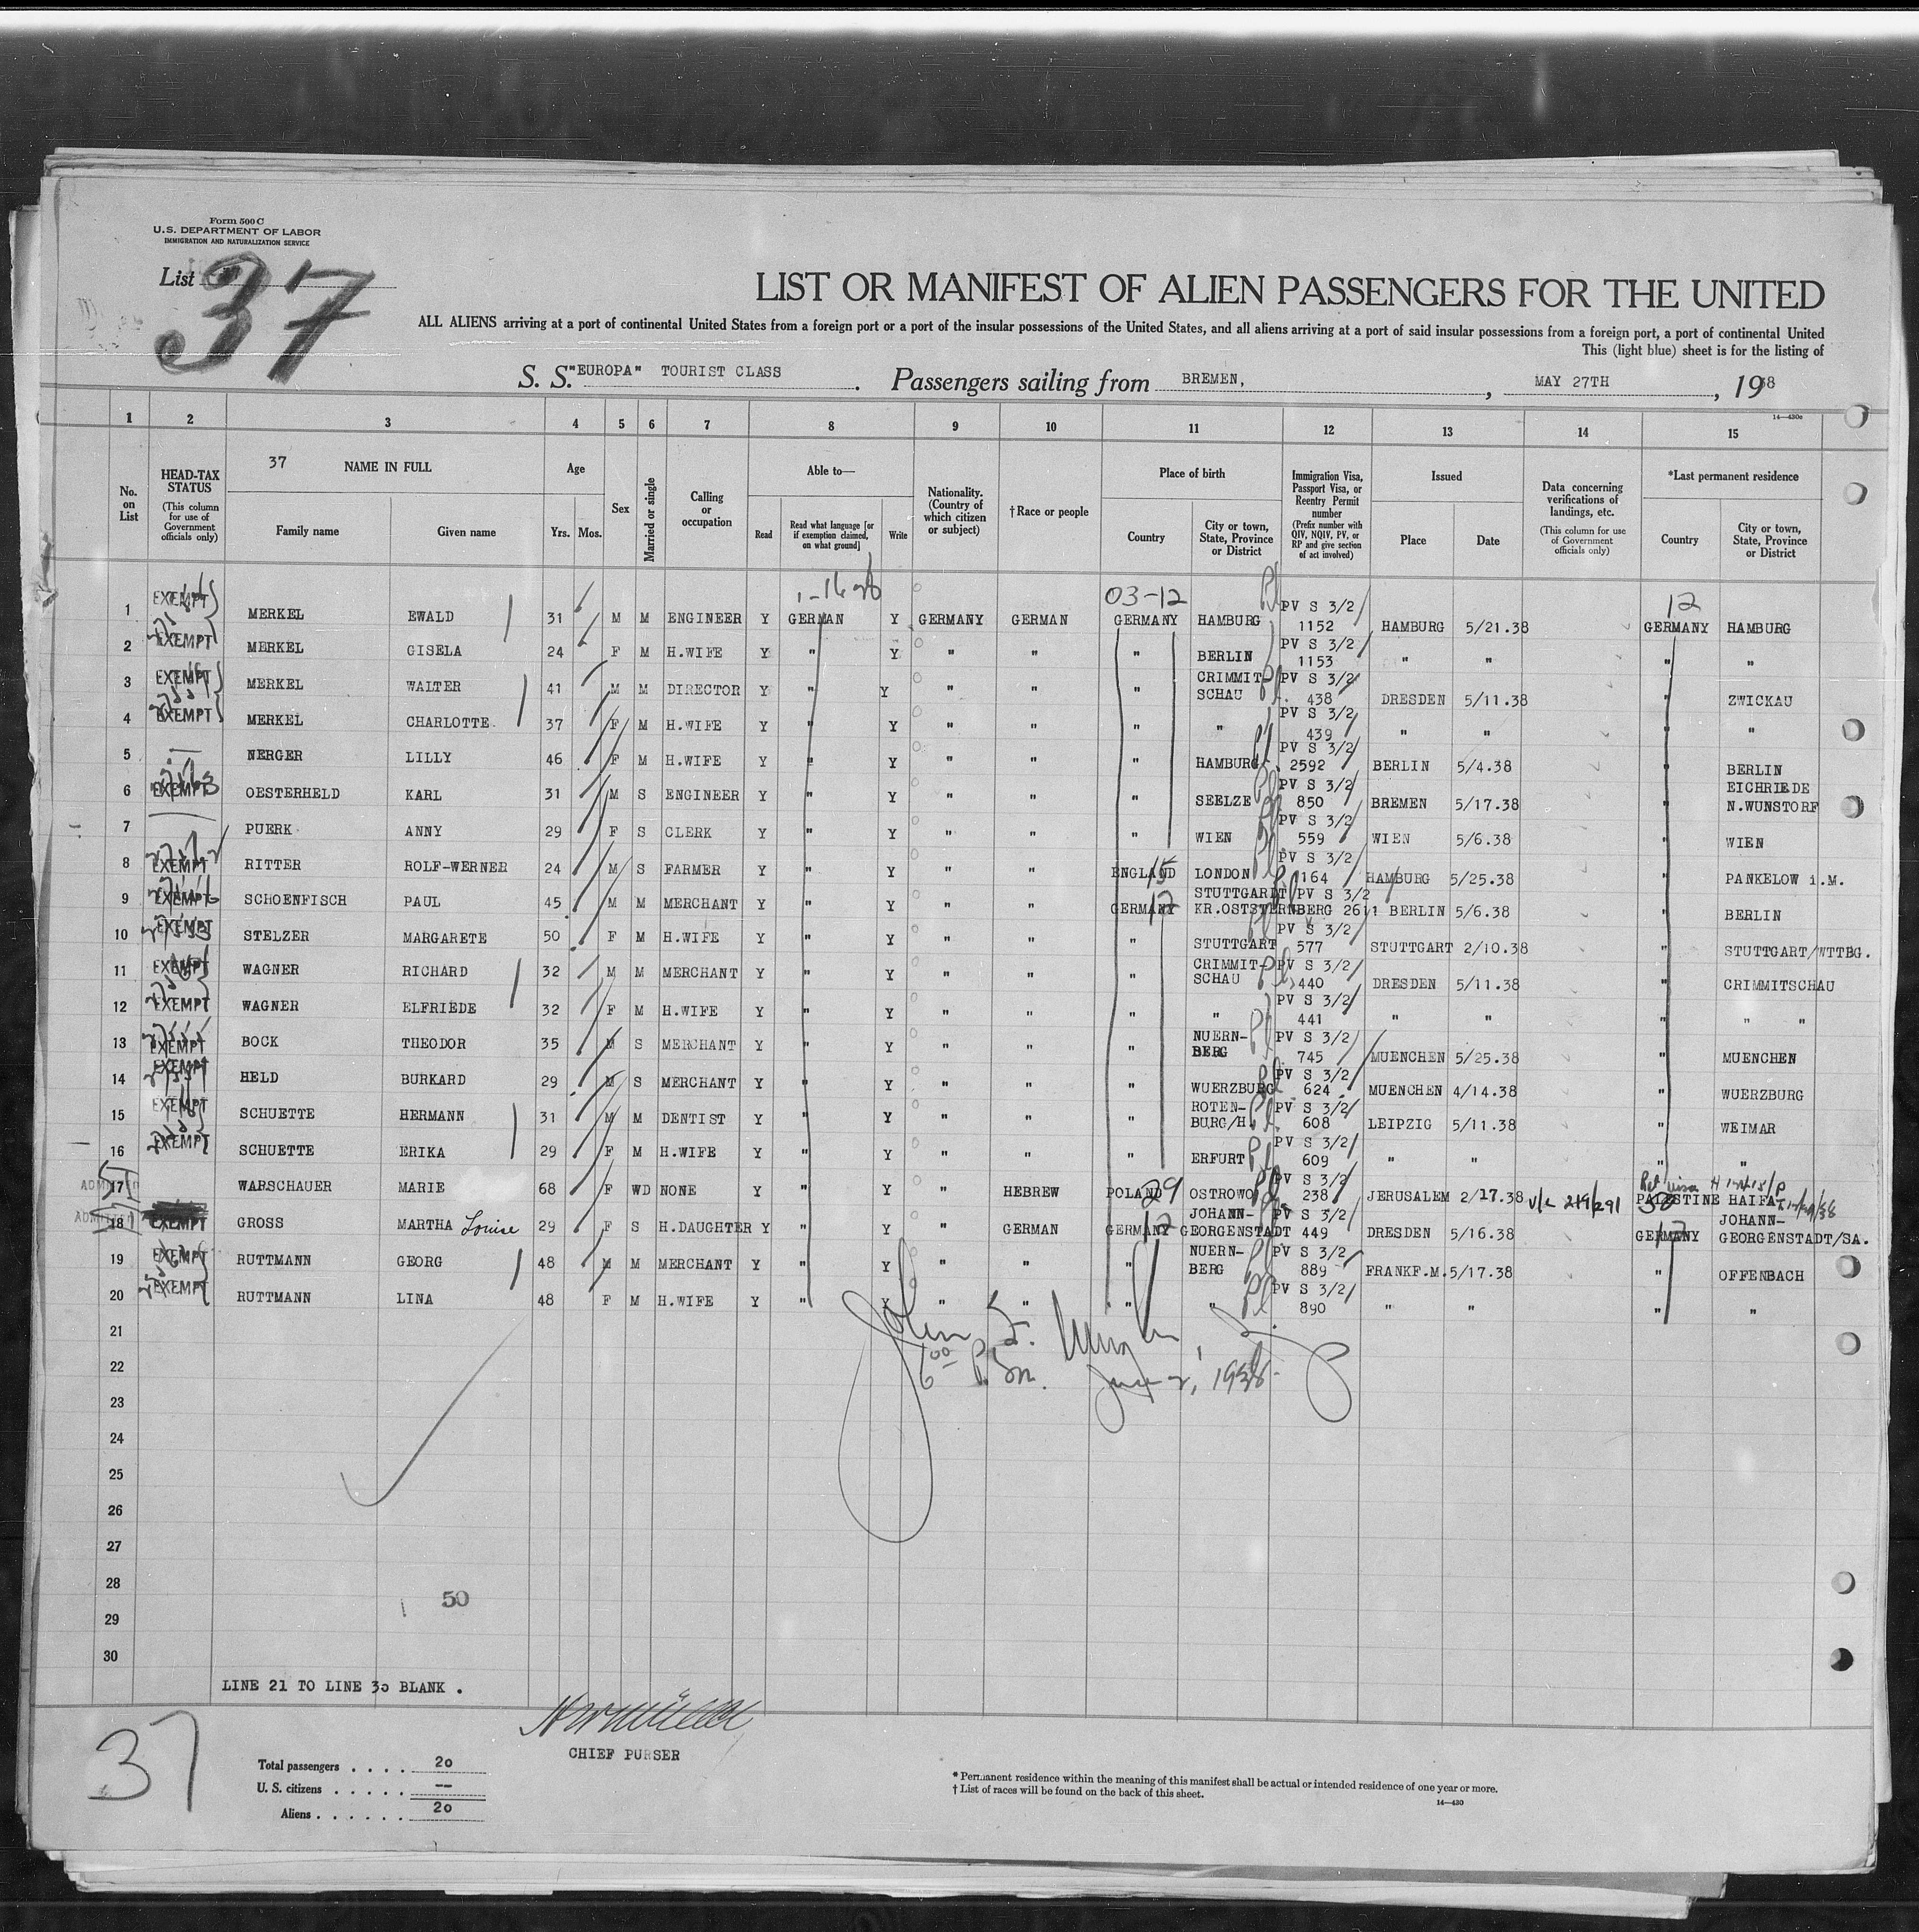 Form 500 C
U.S. DEPARTMENT OF LABOR
IMMIGRATION AND NATURALIZATION SERVICE
List 37
LIST OR MANIFEST OF ALIEN PASSENGERS FOR THE UNITED
ALL ALIENS arriving at a port of continental United States from a foreign port or a port of the insular possessions of the United States, and all aliens arriving at a port of said insular possessions from a foreign port, a port of continental United
This (light blue) sheet is for the listing of
S. S. "EUROPA" TOURIST CLASS. Passengers sailing from BREMEN, , MAY 27TH , 1938
14—430c
1 2 3 4 5 6 7 8 9 10 11 12 13 14 15
No. on List
HEAD-TAX STATUS (This column for use of Government officials only)
37 NAME IN FULL
Family name Given name
Age Yrs. Mos.
Sex
Married or single
Calling or occupation
Able to— Read Read what language [or if exemption claimed, on what ground] Write
Nationality. (Country of which citizen or subject)
†Race or people
Place of birth Country City or town, State, Province or District
Immigration Visa, Passport Visa, or Reentry Permit number (Prefix number with QIV, NQIV, PV, or RP and give section of act involved)
Issued Place Date
Data concerning verifications of landings, etc. (This column for use of Government officials only)
*Last permanent residence Country City or town, State, Province or District
03-12 12
1 EXEMPT MERKEL EWALD 31 M M ENGINEER Y GERMAN Y GERMANY GERMAN GERMANY HAMBURG PV S 3/2/ 1152 HAMBURG 5/21.38 GERMANY HAMBURG
2 EXEMPT MERKEL GISELA 24 F M H.WIFE Y " Y " " " BERLIN PV S 3/2/ 1153 " " " "
3 EXEMPT MERKEL WALTER 41 M M DIRECTOR Y " Y " " " CRIMMIT-SCHAU PV S 3/2/ 438 DRESDEN 5/11.38 " ZWICKAU
4 EXEMPT MERKEL CHARLOTTE. 37 F M H.WIFE Y " Y " " " " PV S 3/2/ 439 " " " "
5 NERGER LILLY 46 F M H.WIFE Y " Y " " " HAMBURG PV S 3/2/ 2592 BERLIN 5/4.38 " BERLIN
6 EXEMPT OESTERHELD KARL 31 M S ENGINEER Y " Y " " " SEELZE PV S 3/2/ 850 BREMEN 5/17.38 " EICHRIEDE N.WUNSTORF
7 PUERK ANNY 29 F S CLERK Y " Y " " " WIEN PV S 3/2/ 559 WIEN 5/6.38 " WIEN
8 EXEMPT RITTER ROLF-WERNER 24 M S FARMER Y " Y " " ENGLAND 15 LONDON PV S 3/2/ 164 HAMBURG 5/25.38 " PANKELOW i.M.
9 EXEMPT SCHOENFISCH PAUL 45 M M MERCHANT Y " Y " " GERMANY 12 STUTTGARDT KR.OSTSTERNBERG PV S 3/2 2611 BERLIN 5/6.38 " BERLIN
10 EXEMPT STELZER MARGARETE 50 F M H.WIFE Y " Y " " " STUTTGART PV S 3/2/ 577 STUTTGART 2/10.38 " STUTTGART/WTTBG.
11 EXEMPT WAGNER RICHARD 32 M M MERCHANT Y " Y " " " CRIMMIT-SCHAU PV S 3/2/ 440 DRESDEN 5/11.38 " CRIMMITSCHAU
12 EXEMPT WAGNER ELFRIEDE 32 F M H.WIFE Y " Y " " " " PV S 3/2/ 441 " " " " "
13 EXEMPT BOCK THEODOR 35 M S MERCHANT Y " Y " " " NUERN-BERG PV S 3/2/ 745 MUENCHEN 5/25.38 " MUENCHEN
14 EXEMPT HELD BURKARD 29 M S MERCHANT Y " Y " " " WUERZBURG PV S 3/2/ 624 MUENCHEN 4/14.38 " WUERZBURG
15 EXEMPT SCHUETTE HERMANN 31 M M DENTIST Y " Y " " " ROTEN-BURG/H. PV S 3/2/ 608 LEIPZIG 5/11.38 " WEIMAR
16 EXEMPT SCHUETTE ERIKA 29 F M H.WIFE Y " Y " " " ERFURT PV S 3/2/ 609 " " " "
ADMITTED 17 WARSCHAUER MARIE 68 F WD NONE Y " Y " HEBREW POLAND 29 OSTROWO PV S 3/2/ 238 JERUSALEM 2/17.38 PALESTINE HAIFA
ADMITTED 18 EXEMPT GROSS MARTHA Louise 29 F S H.DAUGHTER Y " Y " GERMAN GERMANY 12 JOHANN-GEORGENSTADT PV S 3/2/ 449 DRESDEN 5/16.38 GERMANY 12 JOHANN-GEORGENSTADT/SA.
19 EXEMPT RUTTMANN GEORG 48 M M MERCHANT Y " Y " " " NUERN-BERG PV S 3/2 889 FRANKF.M. 5/17.38 " OFFENBACH
20 EXEMPT RUTTMANN LINA 48 F M H.WIFE Y " Y " " " " PV S 3/2/ 890 " " " "
21
22 6 00 P.m. June 2, 1938
23
24
25
26
27
28 50
29
30
LINE 21 TO LINE 30 BLANK .
CHIEF PURSER
37
Total passengers . . . . 20
U. S. citizens . . . . . --
Aliens . . . . . . 20
* Permanent residence within the meaning of this manifest shall be actual or intended residence of one year or more.
† List of races will be found on the back of this sheet.
14—430